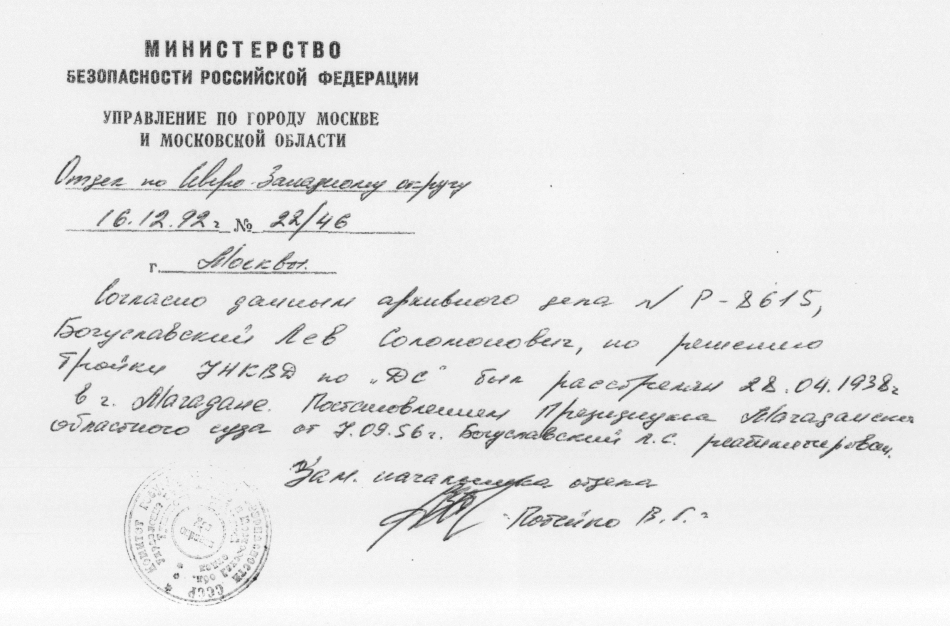 МИНИСТЕРСТВО
БЕЗОПАСНОСТИ РОССИЙСКОЙ ФЕДЕРАЦИИ
УПРАВЛЕНИЕ ПО ГОРОДУ МОСКВЕ
И МОСКОВСКОЙ ОБЛАСТИ
Отдел по Северо-Западному округу
16.12.92 г № 22/46
г. Москвы.
Согласно данным архивного дела N Р-8615,
Богуславский Лев Соломонович, по решению
Тройки УНКВД по „ДС" был расстрелян 28.04.1938г
в г. Магадане. Постановлением Президиума Магаданско
областного суда от 7.09.56 г. Богуславский Л.С. реабилитирован.
Зам. начальника отдела
В. Г.
СССР